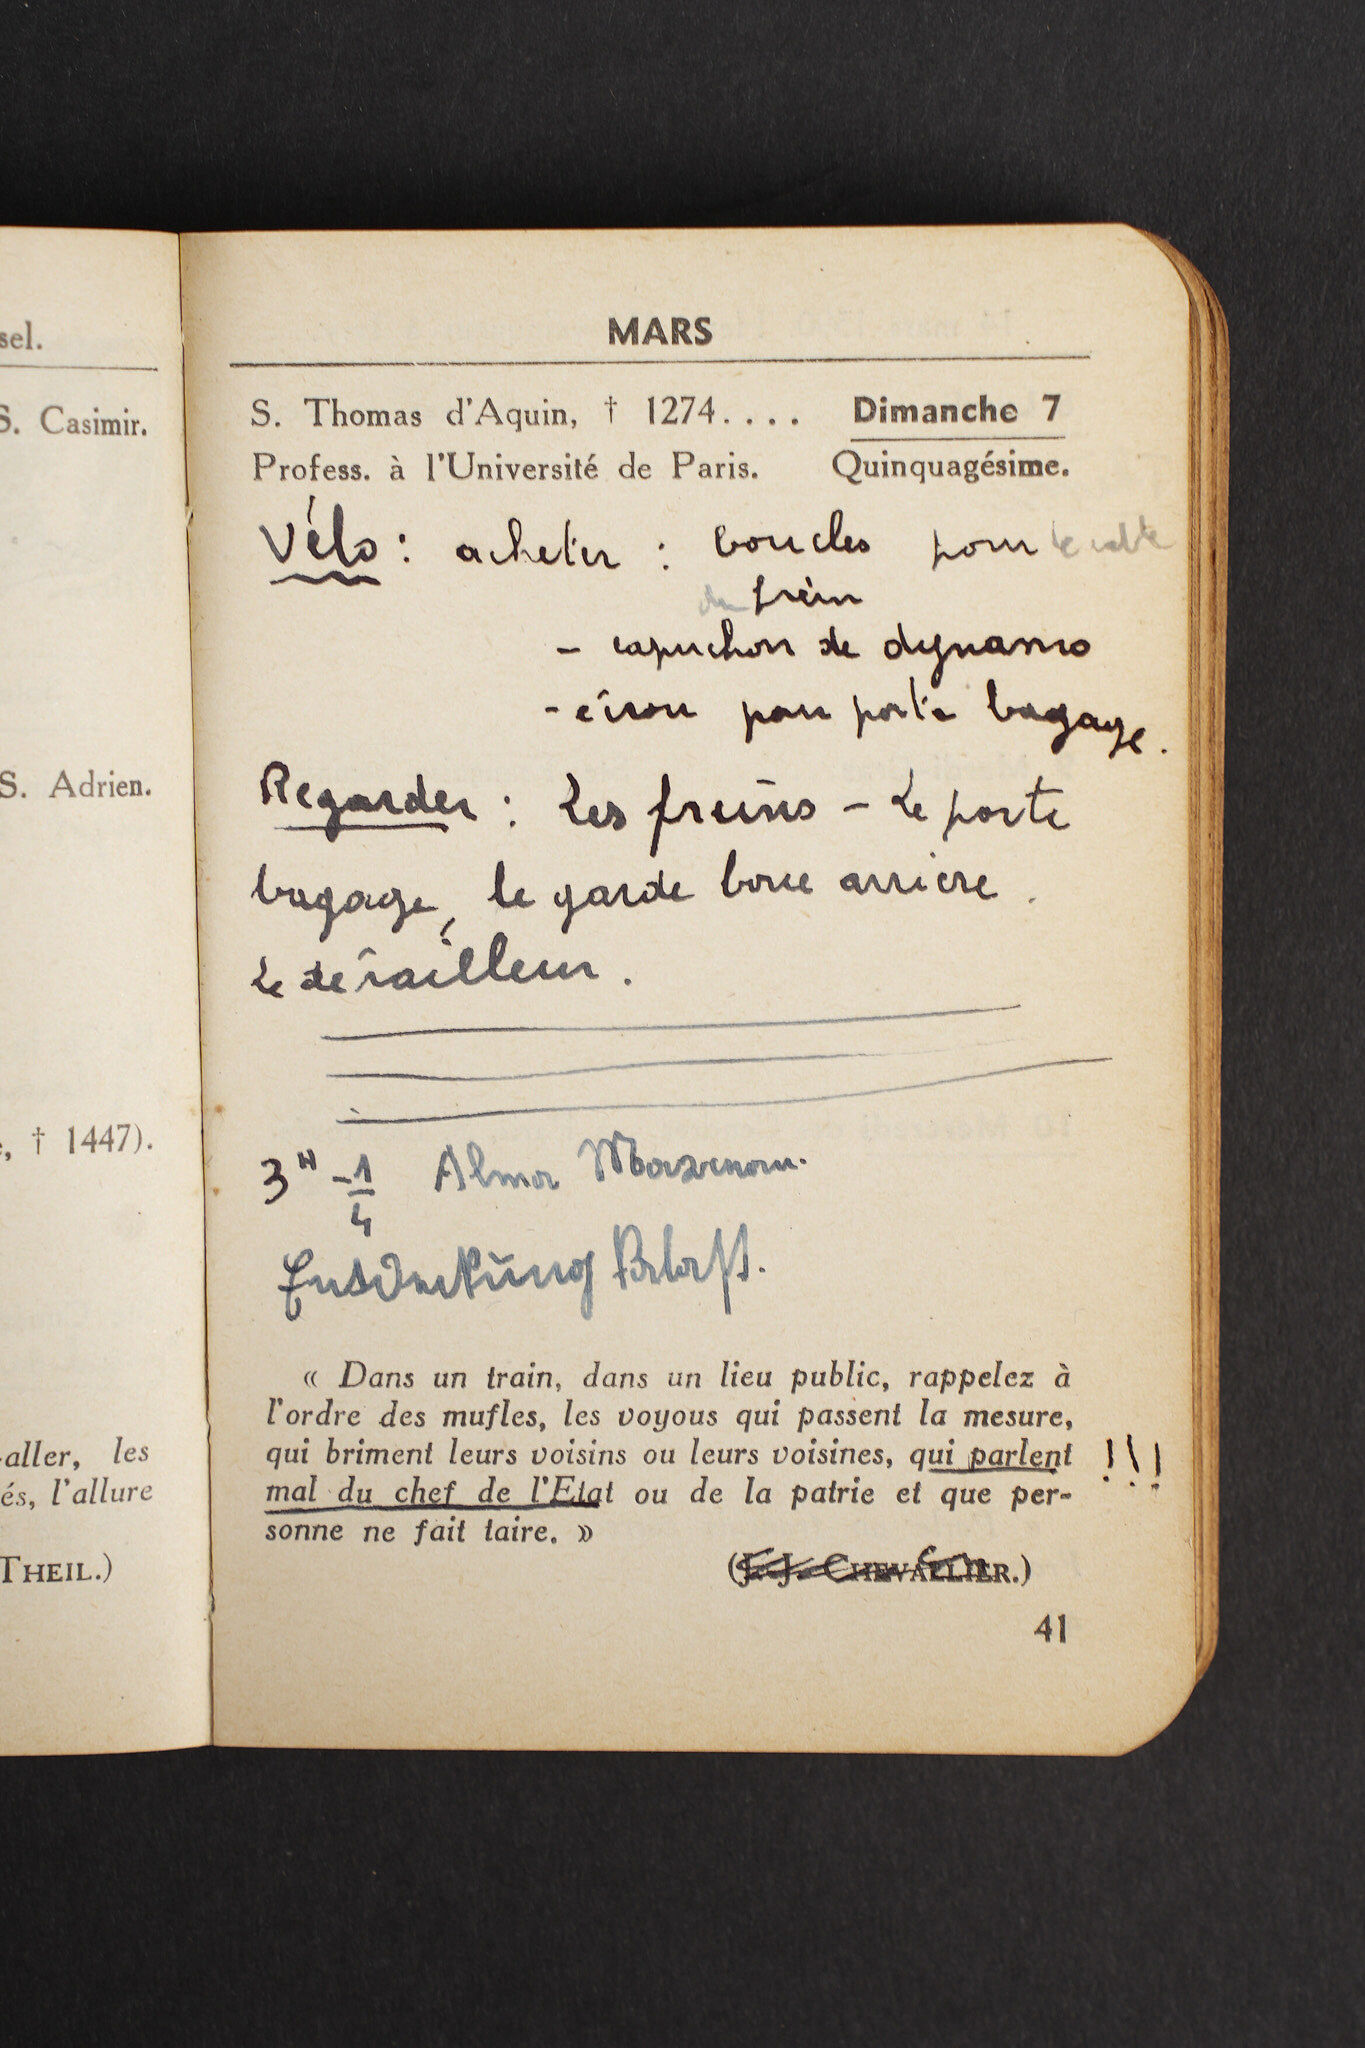 sel.
S. Casimir.
S. Adrien.
, † 1447).
-aller, les
és, l'allure
THEIL.)
MARS
S. Thomas d'Aquin, † 1274.... Dimanche 7
Profess. à l'Université de Paris. Quinquagésime.
Vélo : acheter : boucles pour le cable
du frein
- capuchon de dynamo
- écrou pour porte bagage.
Regarder : Les freins - Le porte
bagage, le garde boue arriere.
Le dérailleur.
3H - 1/4 Alma
« Dans un train, dans un lieu public, rappelez à
l'ordre des mufles, les voyous qui passent la mesure,
qui briment leurs voisins ou leurs voisines, qui parlent !!!
mal du chef de l'Etat ou de la patrie et que per-
sonne ne fait taire. »
(J.-J. CHEVALLIER.)
41